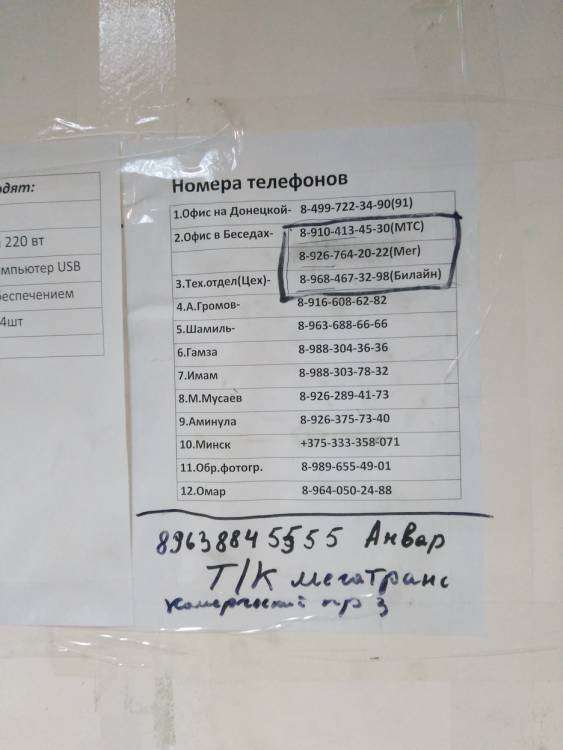 одят:
220 вт
мпьютер USB
еспечением
4шт
Номера телефонов
1.Офис на Донецкой- 8-499-722-34-90(91)
2.Офис в Беседах- 8-910-413-45-30(МТС)
8-926-764-20-22(Мег)
3.Тех.отдел(Цех)- 8-968-467-32-98(Билайн)
4.А.Громов- 8-916-608-62-82
5.Шамиль- 8-963-688-66-66
6.Гамза 8-988-304-36-36
7.Имам 8-988-303-78-32
8.М.Мусаев 8-926-289-41-73
9.Аминула 8-926-375-73-40
10.Минск +375-333-358-071
11.Обр.фотогр. 8-989-655-49-01
12.Омар 8-964-050-24-88
89638845555 Анвар
Т/К мегатранс
пр 3